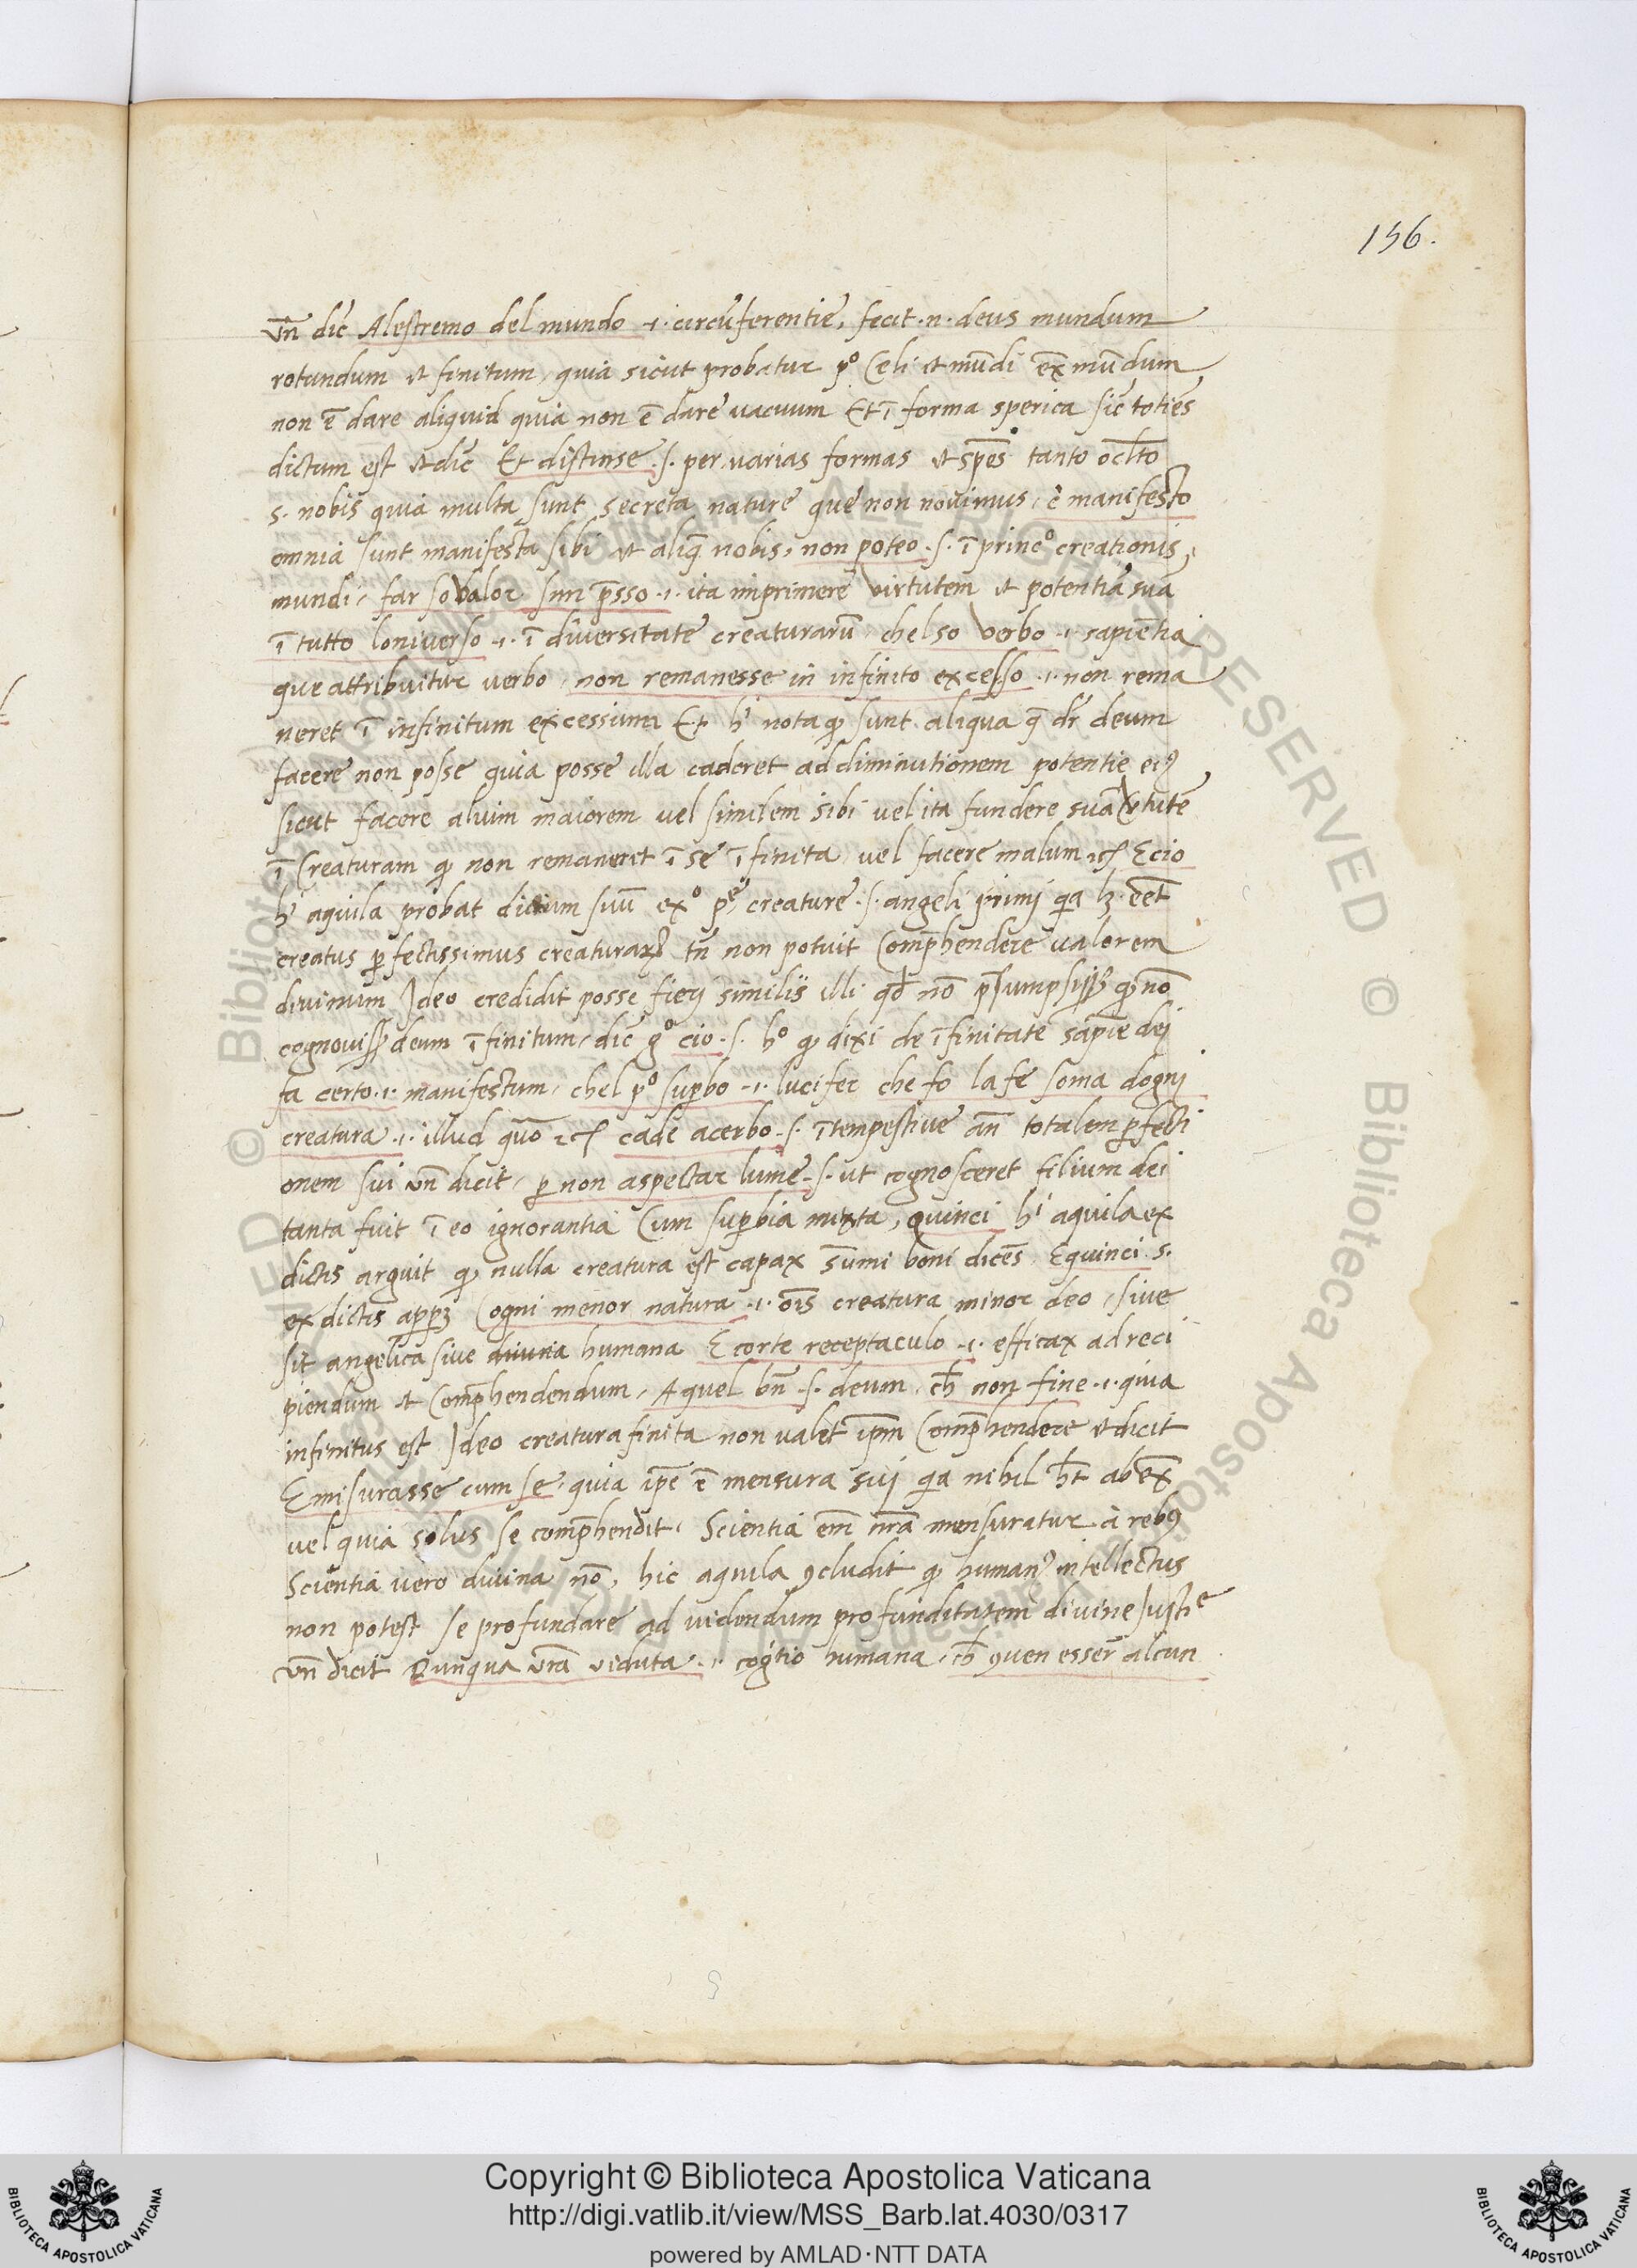 156.
vn̄ dic̄ Alestremo del mundo .i. circūferentie, fecit .n. deus mundum
rotundum et finitum, quia sicut probatur p° Celi et mūdi ex̄ mūdum
non ē dare aliquid quia non ē dare vacuum Et ī forma sperica sic̄ toties
dictum est et dic̄ Et distinse .s. per varias formas et spēs tanto oclto
s. nobis quia multa sunt secreta nature que non novimus, e manifesto
omnia sunt manifesta sibi et aliq̄ nobis, non poteo .s. ī princ° creationis
mundi, far so valor sun p̄sso .i. ita imprimere virtutem et potentiā sua
ī tutto loniverso .i. ī diversitate creaturarū chel so verbo .i. sapiētia
que attribuitur verbo, non remanesse in infinito excesso .i. non rema
neret ī infinitum excessium Et h' nota qꝫ sunt aliqua q̄ dr̄ deum
facere non posse quia posse illa caderet ad diminutionem potentie eiꝰ
sicut facere alium maiorem vel similem sibi vel ita fundere suā v̄tutē
ī Creaturam qꝫ non remaneret ī se īfinita vel facere malum Ecio
h' aquila probat dictum suū ex° p̄e creature .s. angeli primi qa lꝫ eēt
creatus ꝑfectissimus creaturaꝝ tn̄ non potuit Comp̄hendere valorem
divinum Ideo credidit posse fieri similis illi qd̄ nō p̄sumpsissꝫ qꝫ nō
cognovissꝫ deum īfinitum, dic̄ g° cio .s. h° qꝫ dixi de īfinitate sapīe dei
fa certo .i. manifestum, chel p° suꝑbo .i. lucifer che fo la fe soma dogni
creatura .i. illud quō cade acerbo .s. ītempestive an̄ totalem ꝑfecti
onem sui vn̄ dicit, ꝑ non aspectar lume .s. ut cognosceret filium dei
tanta fuit ī eo ignorantia Cum suꝑbia mixta, quinci h' aquila ex
dictis arguit qꝫ nulla creatura est capax sūmi boni dicēs Equinci s.
ex dictis apꝑꝫ Cogni menor natura .i. oīs creatura minor deo, sive
sit angelica sive divina humana E corte receptaculo .i. efficax ad reci
piendum et Comp̄hendendum, Aquel bn̄ .s. deum ch̄ non fine .i. quia
infinitus est Ideo creatura finita non valet ip̄m Comp̄hendere et dicit
Emisurasse cum se, quia ip̄e ē mensura sui qa nihil h̄t ab ex̄
vel quia solus se comp̄hendit, Scientia em̄ nr̄a mensuratur à rebꝰ
Scientia vero divina nō, hic aquila ꝯcludit qꝫ humanꝰ intellectus
non potest se profundare ad videndum profunditatem divine Justie
vn̄ dicit Dunqua vr̄a veduta .i. cog'tio humana, ch̄ ꝯven esser̄ alcun
Copyright © Biblioteca Apostolica Vaticana
http://digi.vatlib.it/view/MSS_Barb.lat.4030/0317
powered by AMLAD·NTT DATA
BIBLIOTECA APOSTOLICA VATICANA
BIBLIOTECA APOSTOLICA VATICANA